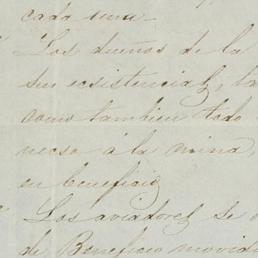 cada una.
Los dueños de la
sus ecsistencias, la
como tambien todo
neceso á la mina,
en beneficio
Los aviadores se
de Beneficio movid